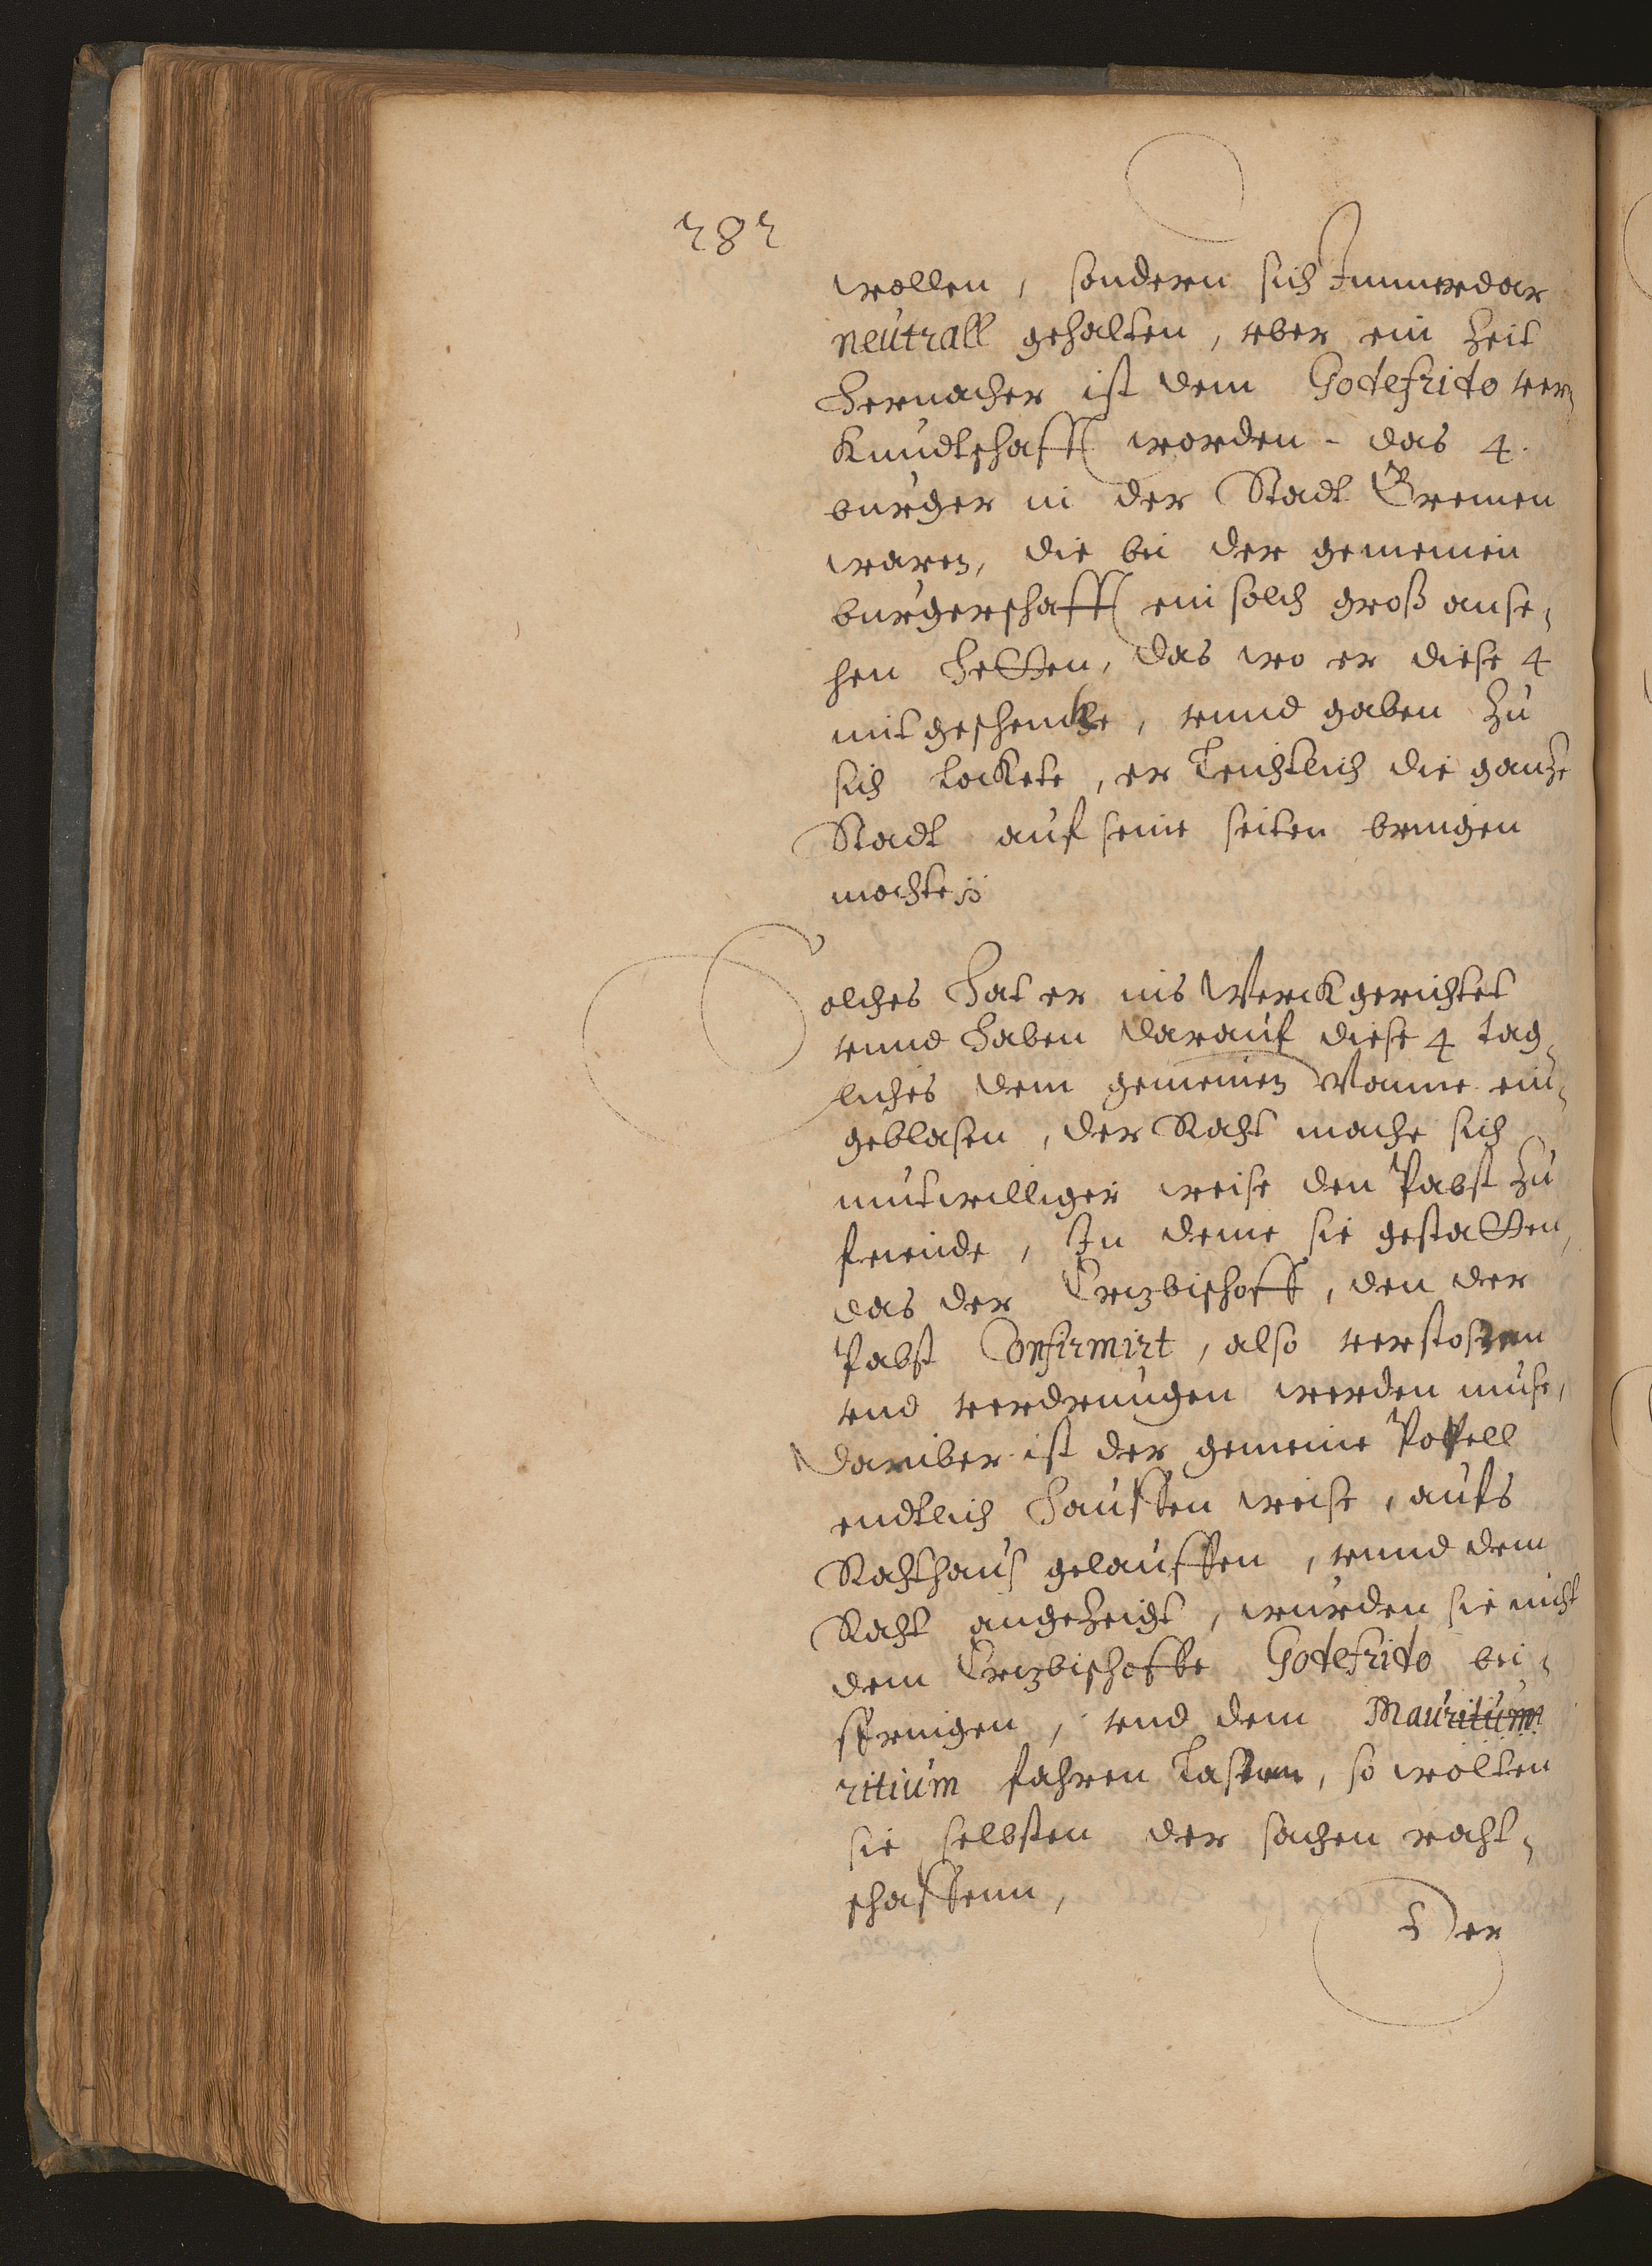 282
wollen, sondern sich Immerdar
neutrall gehalten, uber ein Zeit
Hernacher ist dem Godefrido ver¬
Kundtschafft worden - das 4.
burger in der Stadt Bremen
waren, die bei der gemeinen
burgerschafft ein solch groß anse¬
hen Hetten, das wo er diese 4
mit geschencke, vnnd gaben Zu
sich lockete, er Leichtlich die gantze
Stadt auf seine seiten bringen
mochte
Solches Hat er ins Werck gerichtet
vnnd Haben darauf diese 4 tag¬
liches dem gemeinen Manne ein¬
geblasen, der Raht mache sich
mutwilliger weise den Pabst Zu
feinde, In deme sie gestatten,
das der Ertzbischoff, den der
Pabst Confirmirt, also verstossen
vnd verdrungen werden muse,
daruber ist der gemeine Pofell
endtlich Hauffen weise, aufs
Rahthaus gelauffen, vnnd dem
Raht angezeigt, wurden sie nicht
dem Ertzbischoffe Godefrido bei¬
springen, vnd dem Mauritium
ritium fahren Lassen, so wolten
sie selbsten der sachen raht¬
schaffenn,
Der